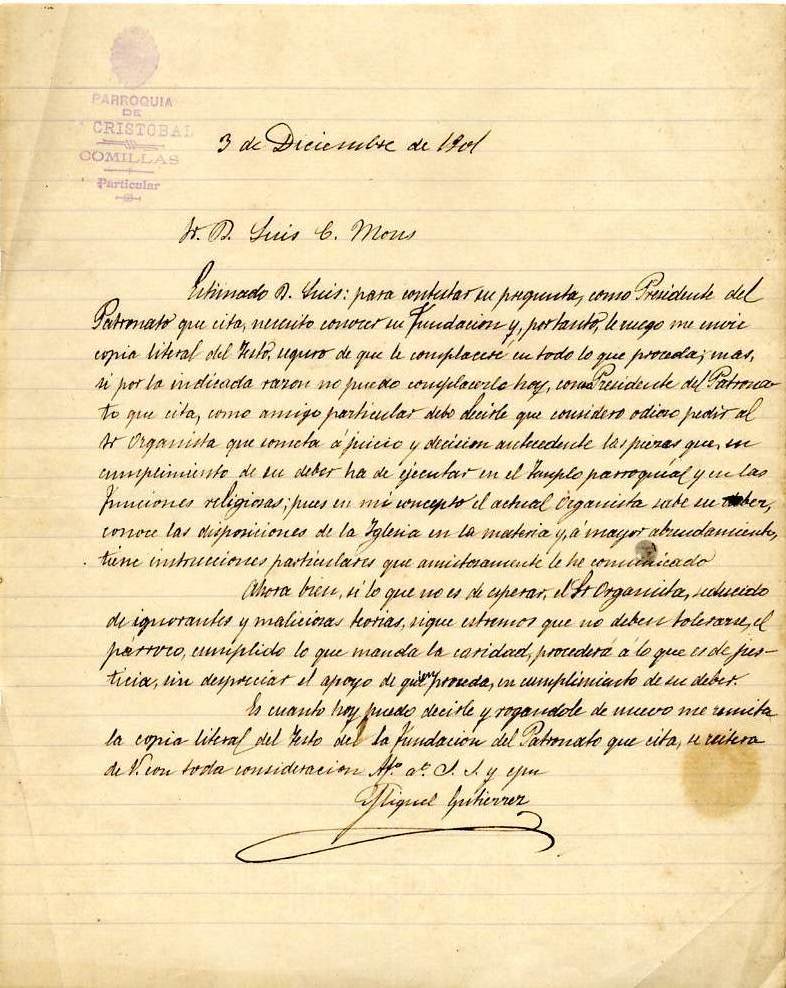 PARROQUIA
DE
CRISTOBAL
COMILLAS
Particular
3 de Diciembre de 1901
Sr. D. Luis C. Mons
Estimado D. Luis: para contestar su pregunta, como Presidente del
Patronato que cita, necesito conocer su fundacion y, por tanto, le ruego me envie
copia literal del Testo, seguro de que le complaceré en todo lo que proceda; mas,
si por la indicada razon no puedo complacerlo hoy, como Presidente del Patrona-
to que cita, como amigo particular debo decirle que considero odioso pedir al
Sr Organista que someta á juicio y decision antecedente las piezas que, en
cumplimiento de su deber ha de ejecutar en el Templo parroquial y en las
funciones religiosas; pues en mi concepto el actual Organista sabe su deber,
conoce las disposiciones de la Iglesia en la materia y, á mayor abundamiento,
tiene instrucciones particulares que amistosamente le he comunicado
Ahora bien, si lo que no es de esperar, el Sr Organista, seducido
de ignorantes y maliciosas teorias, sigue estremos que no deben tolerarse, el
párroco, cumplido lo que manda la caridad, procederá á lo que es de jus-
ticia, sin despreciar el apoyo de quien proceda, en cumplimiento de su deber.
Es cuanto hoy puedo decirle y rogandole de nuevo me remita
la copia literal del Testo de la fundacion del Patronato que cita, se reitera
de V. con toda consideracion Afo at. S. S. y cpn
Miguel Gutierrez